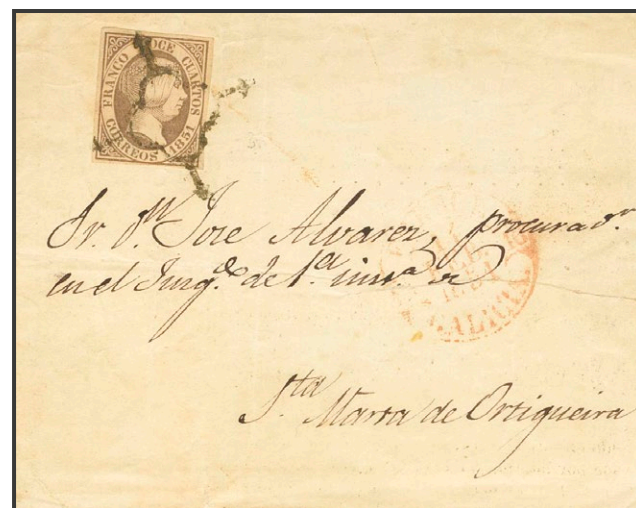 FRANCO DOCE CUARTOS
CORREOS 1851
Sr. Dn Jose Alvarez, procurador.
en el Juzgdo de 1a insta de
GALICIA.
Sta Marta de Ortigueira